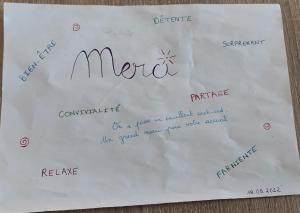 DÉTENTE
SURPRENANT
BIEN-ÊTRE
Merci
PARTAGE
CONVIVIALITÉ
On a passé un excellent week-end
Un grand merci pour votre accueil
RELAXE
FARNIENTE
18.09.2022